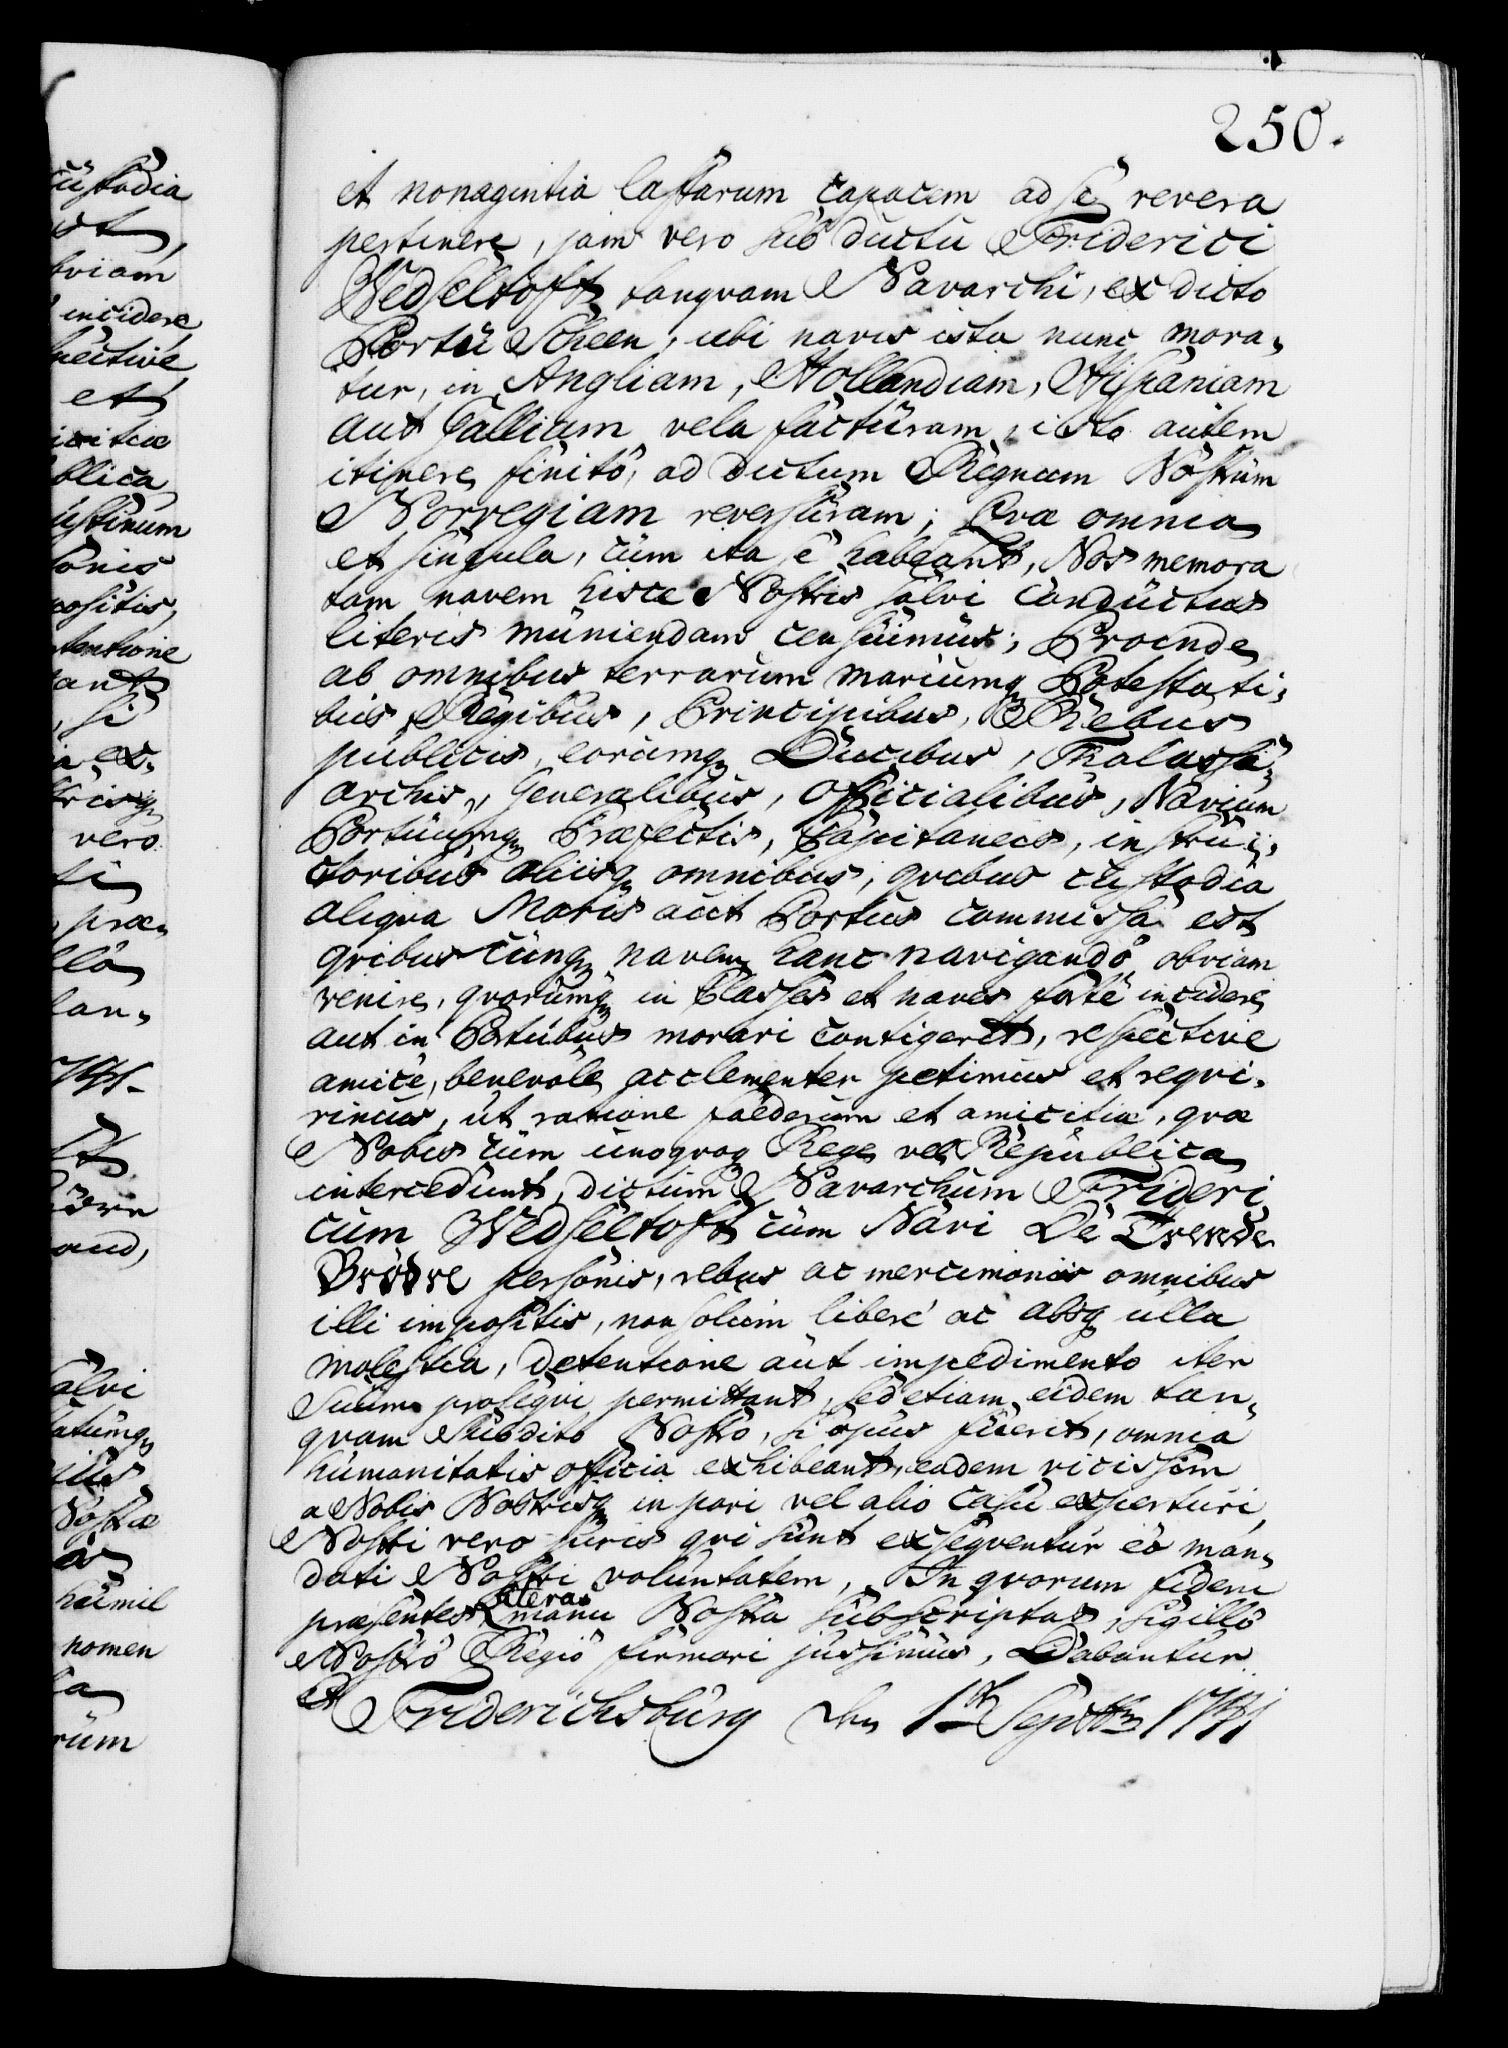 250.
et nonagintia lastarum capacem ad se revera
pertinere, jam vero sub ductu Friderici
Wedseltoft tanqvam Navarchi, ex dicto
Portu Scheen, ubi navis ista nunc mora„
tur, in Angliam, Hollandiam, Hispaniam
aut Galliam vela facturam, isto autem
itinere finito, ad dictum Regnum Nostrum
Norvegiam reversuram; Qvæ omnia
et singula, cum ita se habeant, Nos memora
tam navem hisce Nostris salvi Conductus
literis muniendam censuimus; Proinde
ab omnibus terrarum mariumq Potestati„
bus, Regibus, Principibus, Rebus
publicis, eorumq Ducibus, Thalassi„
archis, Generalibus, Officialibus, Navium
Portuumq Præfectis, Capitaneis, instru„
ctoribus aliisq omnibus, qvibus custodia
aliqva Maris aut Portus commissa est
qvibus cunq navem hanc navigando obviam
venire, qvorumq in Classes et naves forte incidere
aut in Portubus morari contigerit, respective
amice, benevole ac clementer petimus et reqvi„
rimus, ut ratione fæderum et amicitiæ, qvæ
Nobis cum unoqvoq Rege vel Republica
intercedunt, dictum Navarchum Frideri
cum Wedseltoft cum Navi De Trende
Brödre personis, rebus ac mercimoniis omnibus
illi impositis, non solum libere ac absq ulla
molestia, detentione aut impedimento iter
suum proseqvi permittant, sed etiam eidem tan„
qvam Subdito Nostro, si opus fuerit, omnia
humanitatis officia exhibeant, eadem vicissim
a Nobis Nostrisq in pari vel alio casu experturi,
Nostri vero juris qvi sunt exseqventur eo man„
dati Nostri voluntatem, In qvorum fidem
præsentes literas manu Nostra subscriptas, sigillo
Nostro Regio firmari jussimus, Dabantur
et Friderichsburg den 1st Septbr 1741
custodia
obviam
incidere
spective
et
icitiæ
blica
ustinum
sonis
positis,
tentione
ant
, si
ex„
trisq
vero
præ„
llo
lan„
alvi
atumq
Nostræ
humil
nomen
rum